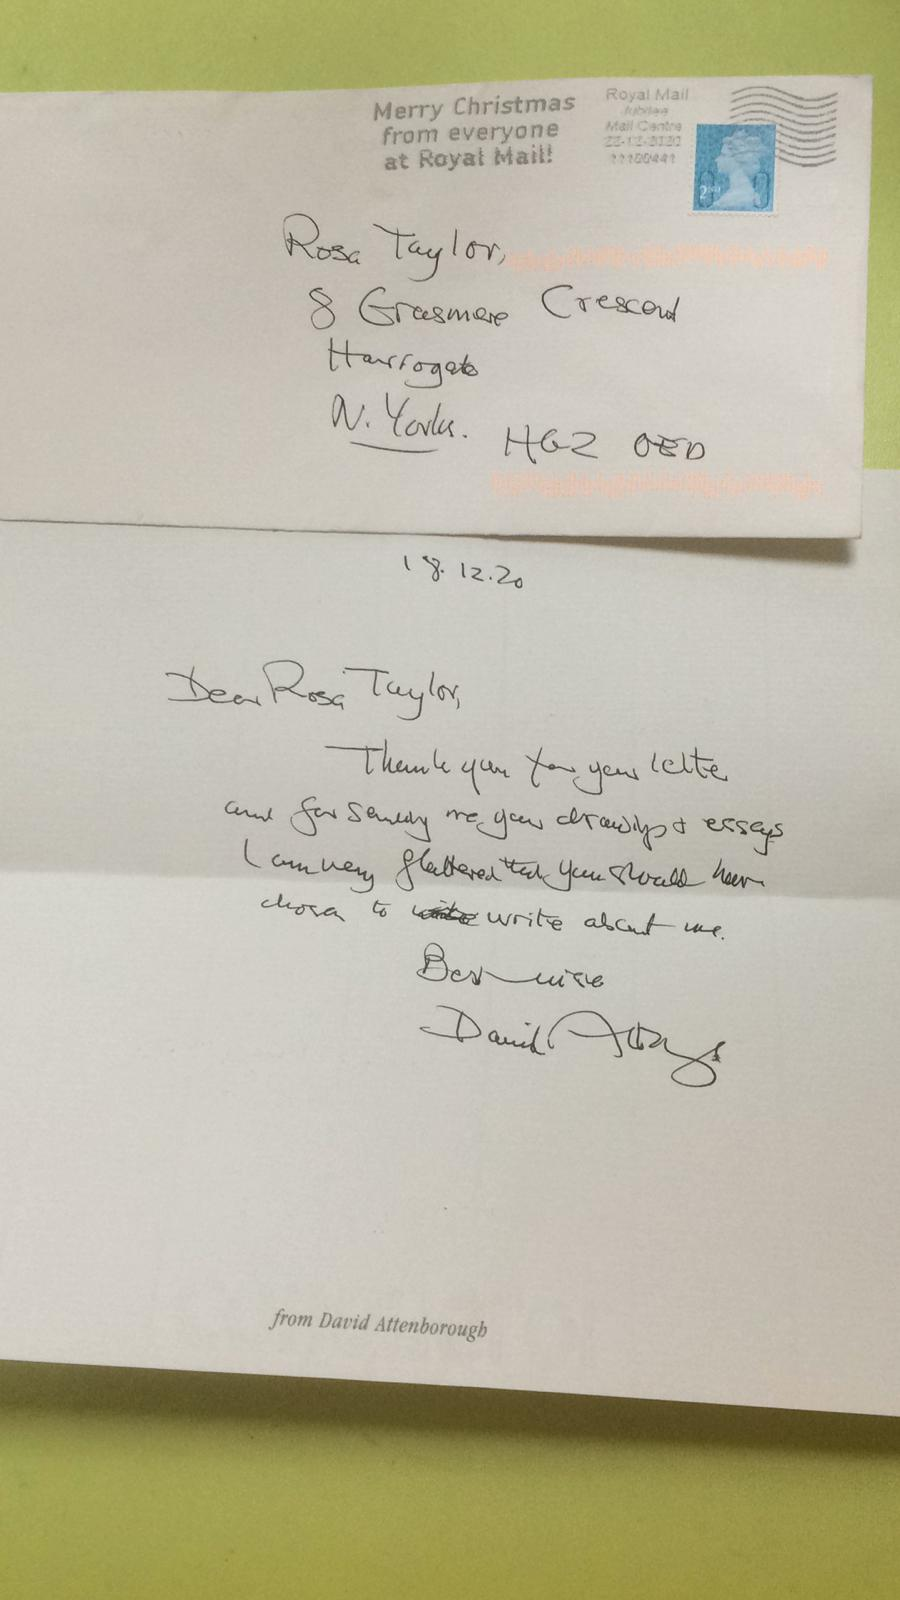 Merry Christmas
from everyone
at Royal Mail!
Royal Mail
Jubilee
Mail Centre
22-12-2020
11100441
2nd
Rosa Taylor,
8 Grasmere Crescent
Harrogate
N. Yorks. HG2 0ED
18.12.20
Dear Rosa Taylor,
Thank you for your letter
and for sending me your drawings & essays
I am very flattered that you should have
chosen to write about me.
Best wishes
David Attenborough
from David Attenborough